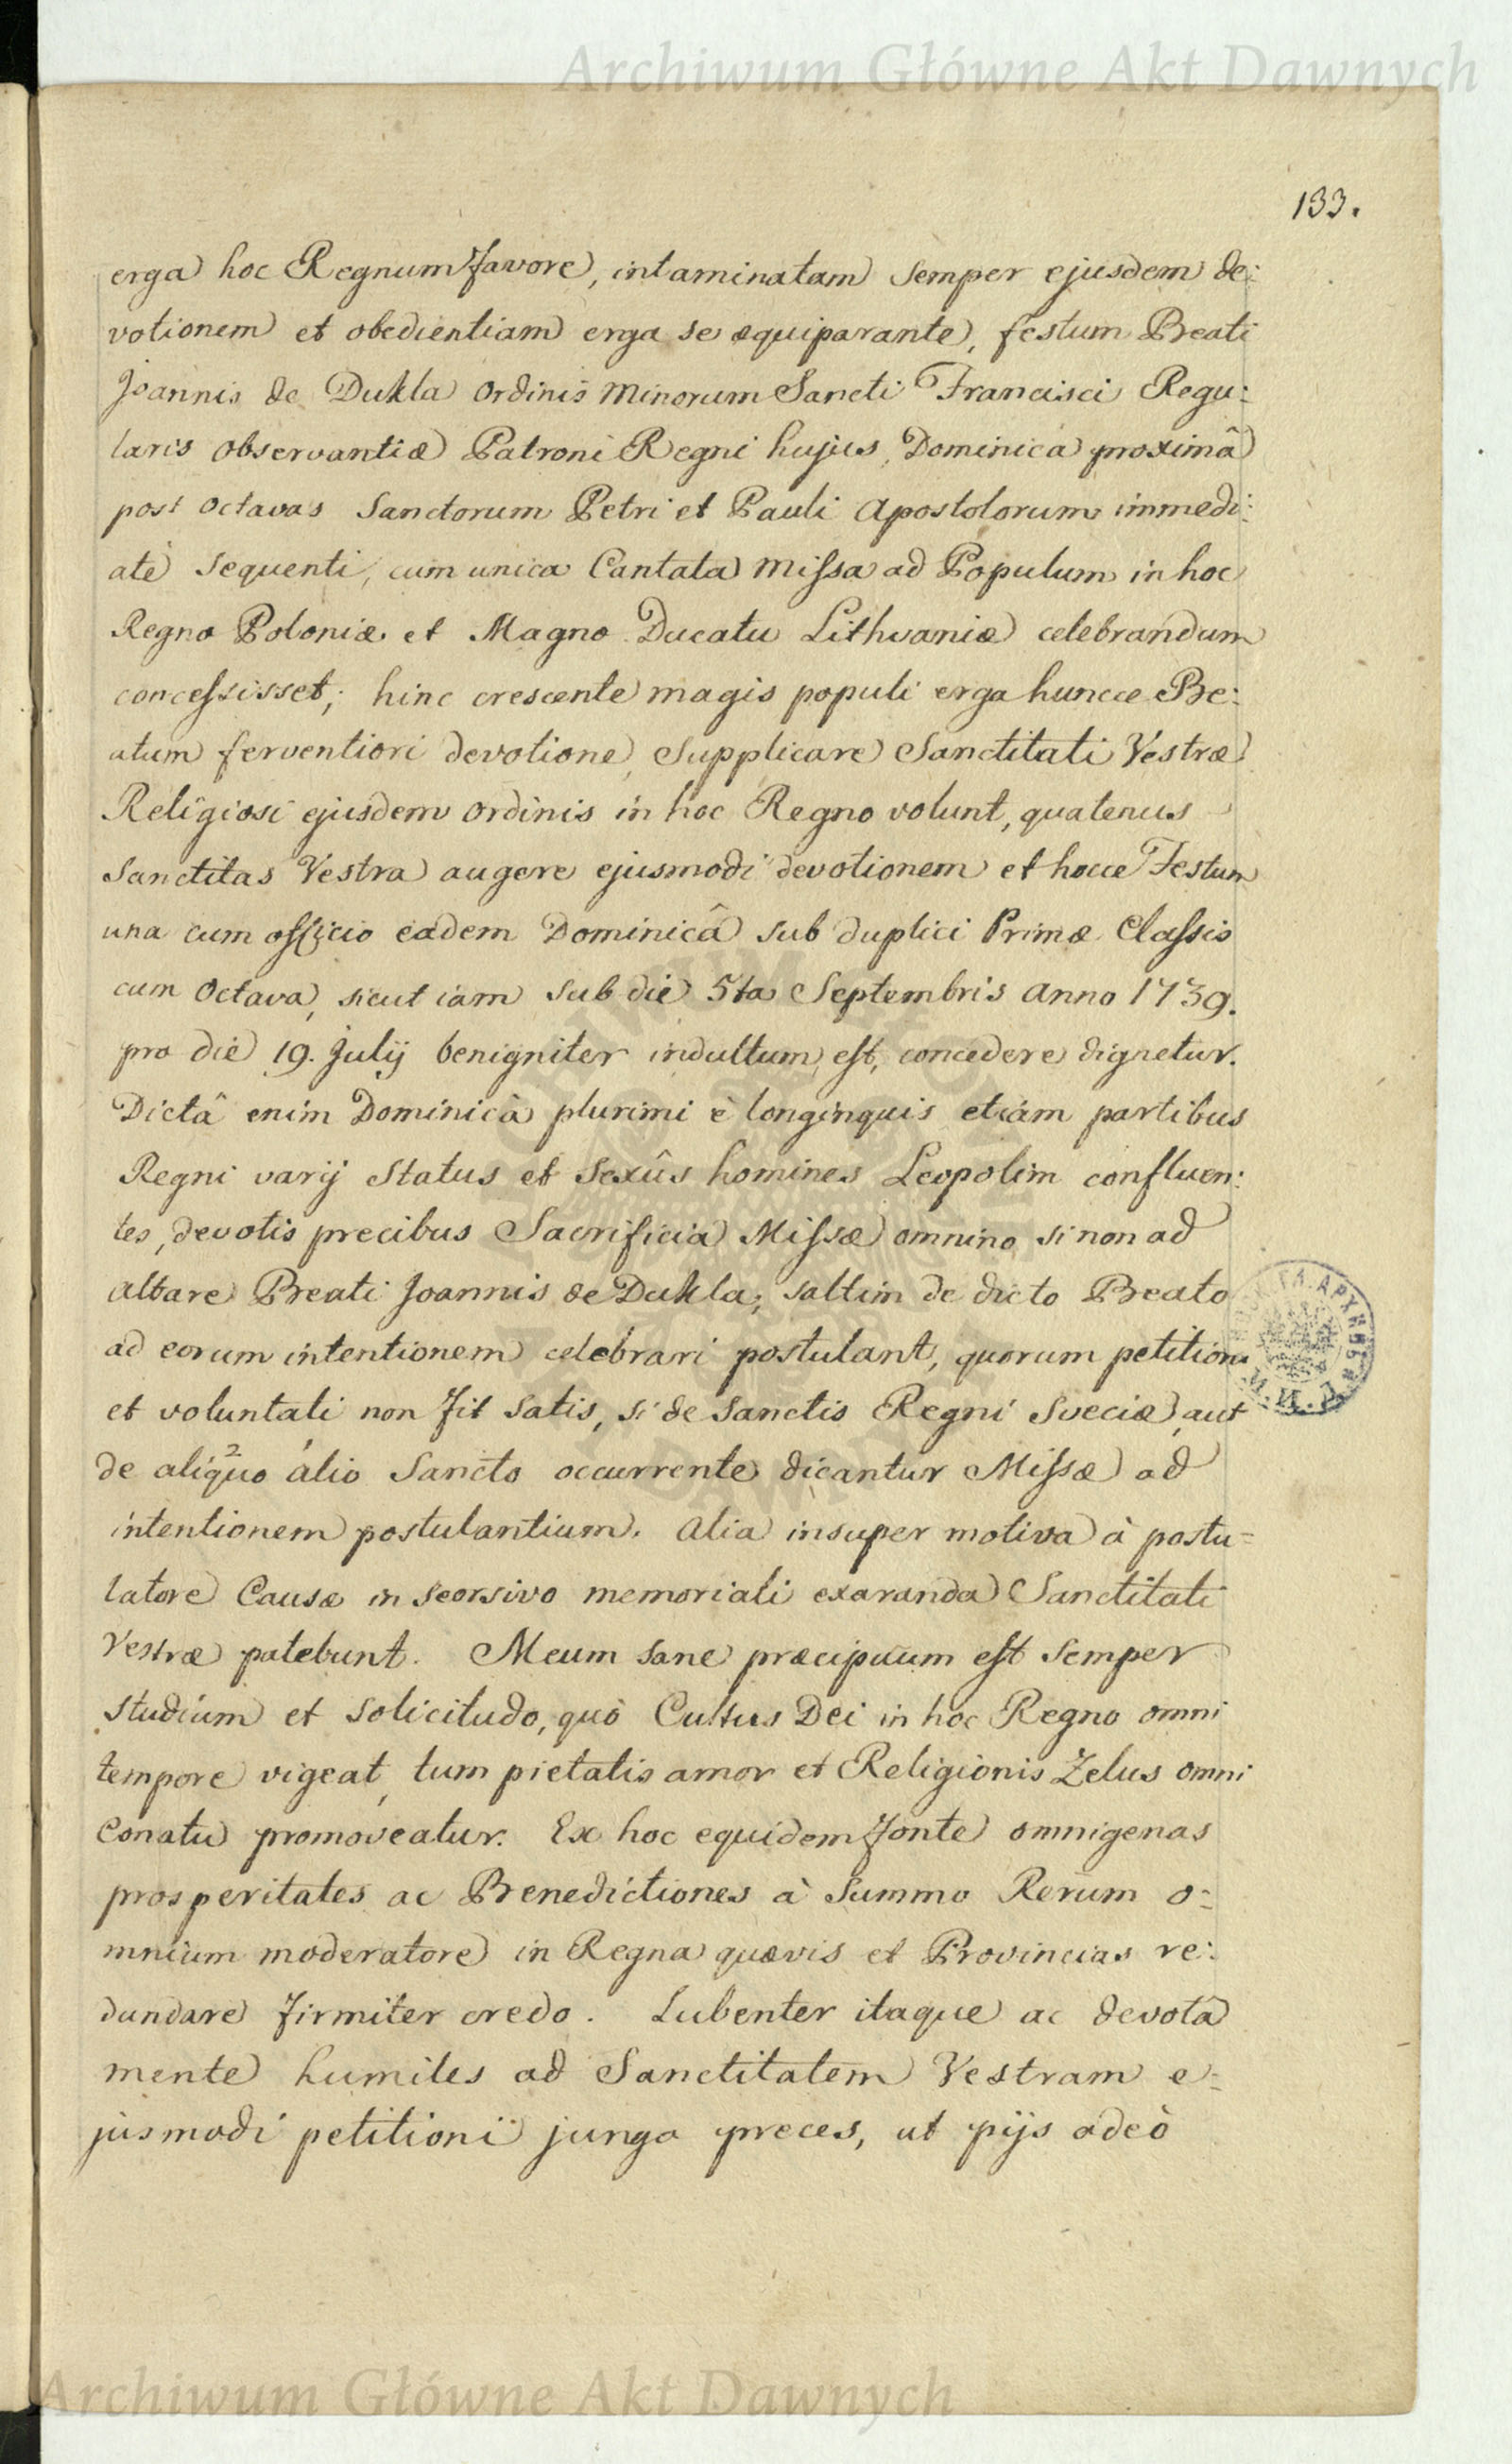 Archiwum Główne Akt Dawnych
133.
erga hoc Regnum favore, intaminatam semper ejusdem de:
votionem et obedientiam erga se æquiparante, festum Beati
Joannis de Dukla Ordinis Minorum Sancti Francisci Regu:
laris Observantiæ Patroni Regni hujus, Dominica proximâ
post Octavas Sanctorum Petri et Pauli Apostolorum immedi:
atè sequenti, cum unica Cantata Missa ad Populum in hoc
Regno Poloniæ et Magno Ducatu Lithvaniæ celebrandum
concessisset; hinc crescente magis populi erga huncce Be:
atum ferventiori devotione, supplicare Sanctitati Vestræ
Religiosi ejusdem Ordinis in hoc Regno volunt, quatenus
Sanctitas Vestra augere ejusmodi devotionem et hocce Festum
una cum officio eadem Dominicâ sub duplici Primæ Classis
cum Octava, sicut iam sub die 5ta Septembris Anno 1739.
pro die 19. Julij benigniter indultum est, concedere dignetur.
Dictâ enim Dominicâ plurimi è longinquis etiam partibus
Regni varij Status et Sexûs homines Leopolim confluen:
tes, devotis precibus Sacrificia Missæ omnino si non ad
altare Beati Joannis de Dukla, saltim de dicto Beato
ad eorum intentionem celebrari postulant, quorum petitioni
et voluntati non fit satis, si de Sanctis Regni Sveciæ, aut
de aliquo alio Sancto occurrente dicantur Missæ ad
intentionem postulantium. Alia insuper motiva à postu=
latore Causæ in seorsivo memoriali exaranda Sanctitati
Vestræ patebunt. Meum sane præcipuum est semper
studium et solicitudo, quò Cultus Dei in hoc Regno omni
tempore vigeat, tum pietatis amor et Religionis Zelus omni
Conatu promoveatur. Ex hoc equidem fonte omnigenas
prosperitates ac Benedictiones à Summo Rerum o:
mnium moderatore in Regna quævis et Provincias re:
dundare firmiter credo. Lubenter itaque ac devotâ
mente humiles ad Sanctitatem Vestram e:
jusmodi petitioni jungo preces, ut pijs adeò
Archiwum Główne Akt Dawnych